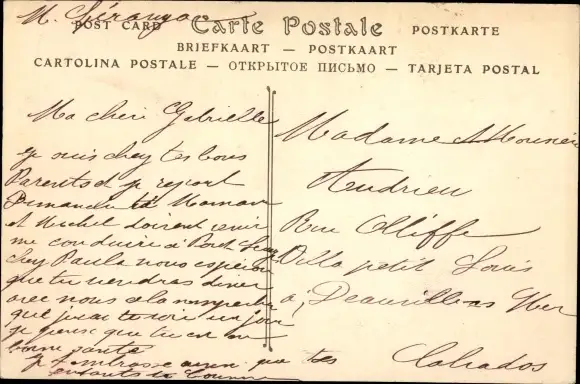 M.
POST CARD Carte Postale POSTKARTE
BRIEFKAART — POSTKAART
CARTOLINA POSTALE — ОТКРЫТОЕ ПИСЬМО — TARJETA POSTAL
Ma cheri Gabrielle
je suis chez tes bons
Parents et je repart
Dimanche Maman
et Michel doivent venir
me conduire à Port
chez Paula nous espérons
que tu viendras diner
avec nous cela
que jusse te voir un jour
je pense que tu est en
bonne santé
je t'embrasse ainsi que tes
enfants ta
Madame
Andrieu
Rue Oliffe
Villa petit Louis
a Deauville as Mer
Calvados